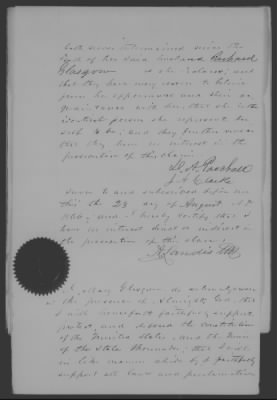 both never remained since the
death of her said husband Richard
Glasgow is she a widow, and
that they have every reason to believe
from her appearance and their ac-
quaintance with her, that she is the
identical person she represents her-
self to be; and they further swear
that they have no interest in the
prosecution of this claim.
D. A. Paschall
J. A. Clarke
Sworn to and subscribed before me
this the 28 day of August A.D.
1866; and I hereby certify that I
have no interest direct or indirect in
the prosecution of this claim.
A Landis
I, Mary Glasgow do solemnly swear
in the presence of Almighty God, that
I will henceforth faithfully support
protect, and defend the Constitution
of the United States, and the Union
of the States thereunder; that I will
in like manner abide by & faithfully
support all laws and proclamations